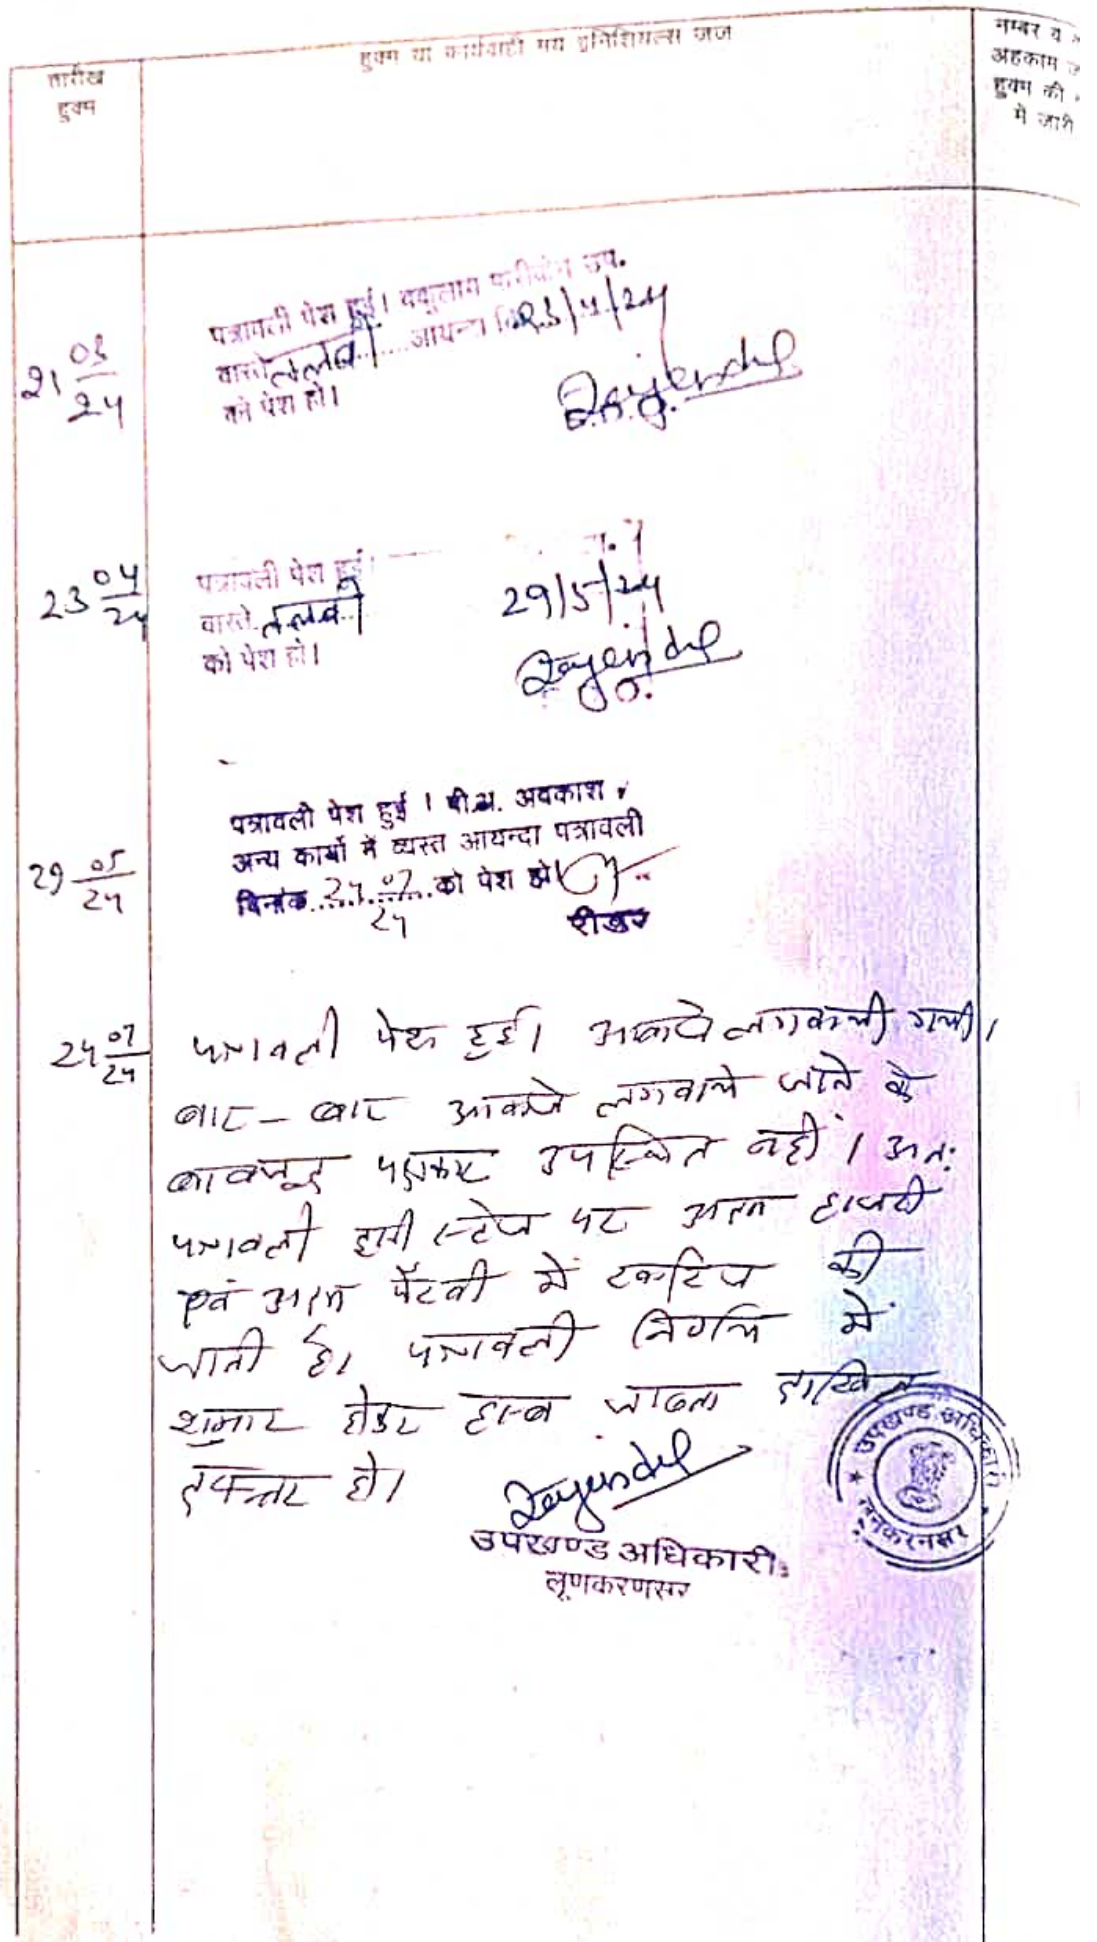 तारीख
हुक्म
हुक्म या कार्यवाही मय इनिशियल्स जज
नम्बर व
अहकाम
हुक्म की
में जारी
21 03/24
पत्रावली पेश हुई। वकूलाय फरीकेन उप.
वास्ते तलबी आयन्दा दि 23/4/24
को पेश हो।
Rajendra
23 04/24
पत्रावली पेश हुई।
वास्ते तलबी 29/5/24
को पेश हो।
Rajendra
29 05/24
पत्रावली पेश हुई । पी.अ. अवकाश
अन्य कार्यो में व्यस्त आयन्दा पत्रावली
दिनांक 24 07/24 को पेश हो
रीडर
24 07/24
पत्रावली पेश हुई। आवाजे लगवायी गयी।
बार - बार आवाजे लगवाये जाने के
बावजूद पक्षकार उपस्थित नहीं। अतः
पत्रावली इसी स्टेज पर अदम हाजरी
एवं अदम पैरवी में खारिज की
जाती है। पत्रावली निर्णित में
शुमार होकर हस्ब जाब्ता दाखिल
दफ्तर हो।
Rajendra
उपखण्ड अधिकारी
लूणकरणसर
उपखण्ड अधिकारी
लूनकरनसर